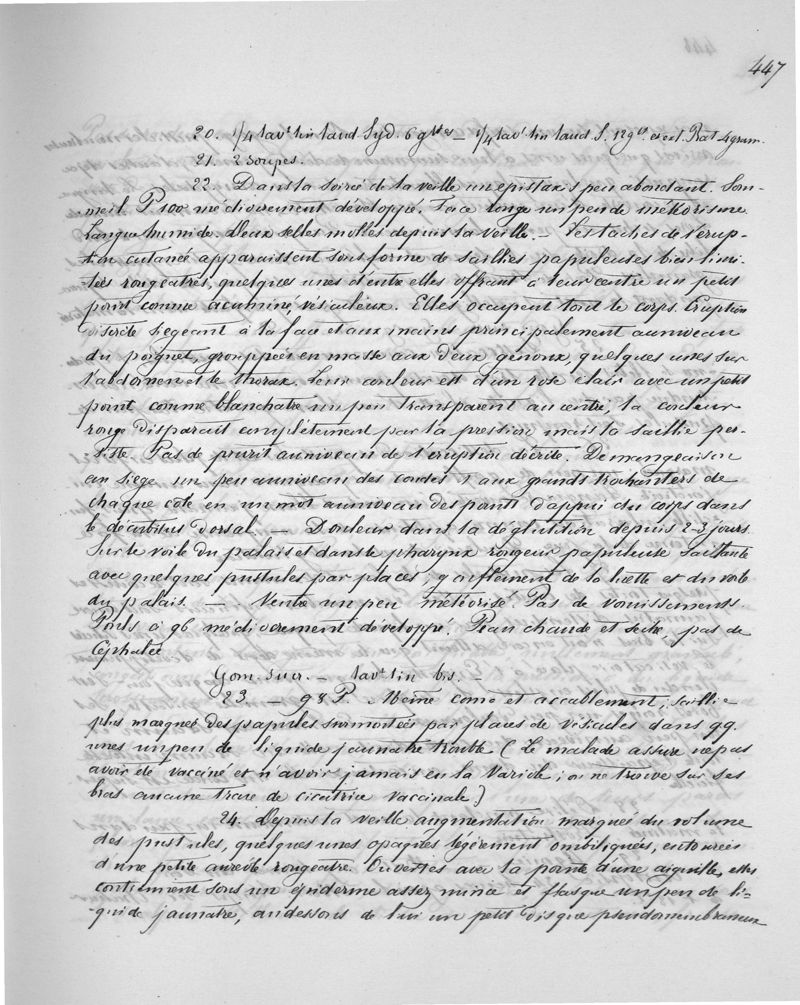 447
20. 1/4 lavt lin laud Syd. 6 gttes — 1/4 lavt lin laud S. 12 gtt. et ext. Rat 4 gram.
21. 2 soupes.
22. Dans la soirée de la veille un epistaxis peu abondant. Som-
meil. P 100 médiocrement développé. Face rouge un peu de météorisme
Langue humide. Deux selles molles depuis la veille. — Les taches de l'erup-
tion cutanée apparaissent sous forme de saillies papuleuses bien limi-
tées rougeatres, quelques unes d'entre elles offrant à leur centre un petit
point comme acuminé, vésiculeux. Elles occupent tout le corps. Eruption
discrète siegeant à la face et aux mains principalement au niveau
du poignet, grouppées en masse aux deux genoux, quelques unes sur
l'abdomen et le thorax. Leur couleur est d'un rose clair avec un petit
point comme blanchatre un peu transparent au centre, la couleur
rouge disparait complètement par la pression mais la saillie per-
siste. Pas de prurit au niveau de l'éruption décrite. Demangeaison
au siege un peu au niveau des coudes et aux grands trochanters de
chaque côté en un mot au niveau des points d'appui du corps dans
le décubitus dorsal — Douleur dans la déglutition depuis 2-3 jours.
Sur le voile du palais et dans le pharynx rougeur papuleuse saillante
avec quelques pustules par places, gonflement de la luette et du voile
du palais. — Ventre un peu météorisé. Pas de vomissements.
Pouls à 96 médiocrement développé. Peau chaude et seche, pas de
Céphalée
Gom. sucr. — lavt lin bis. —
23. — 98 P. Meme coma et accablement, saillie
plus marquée des papules surmontées par places de vésicules dans qq.
unes un peu de liquide jaunatre trouble. (Le malade assure ne pas
avoir été vacciné et n'avoir jamais eu la Variole; on ne trouve sur ses
bras aucune trace de cicatrice vaccinale.)
24. Depuis la veille augmentation marquée du volume
des pustules, quelques unes opaques légèrement ombiliquées, entourées
d'une petite aureole rougeatre. Ouvertes avec la pointe d'une aiguille, elles
contiennent sous un épiderme assez mince et flasque un peu de li-
quide jaunatre, au dessous de lui un petit disque pseudomembraneux